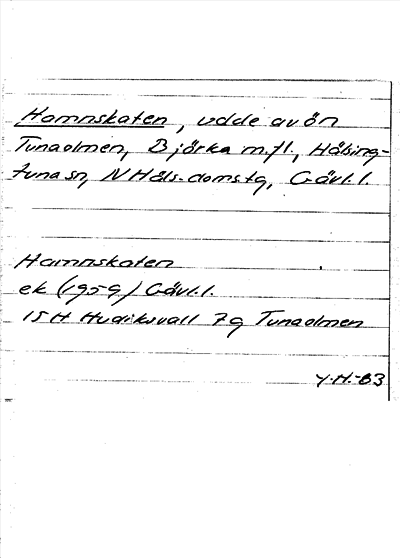 Hamnskaten, udde av ön
Tunaolmen, Björka m.fl., Hälsing-
tuna sn, N Häls. doms.tg, Gävl. l.
Hamnskaten
ek (1959) Gävl. l.
15H Hudiksvall 7g Tunaolmen
Y.H.-83